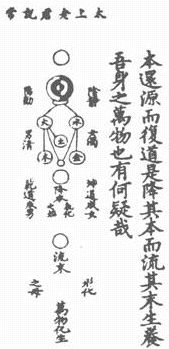 太上老君說常
本還源而復道是降其本而流其末生養
吾身之萬物也有何疑哉
陰靜
陽動
火
水
土
木
金
女濁
男清
降本
坤道成女
乾道成男
流末
之母
萬物化生